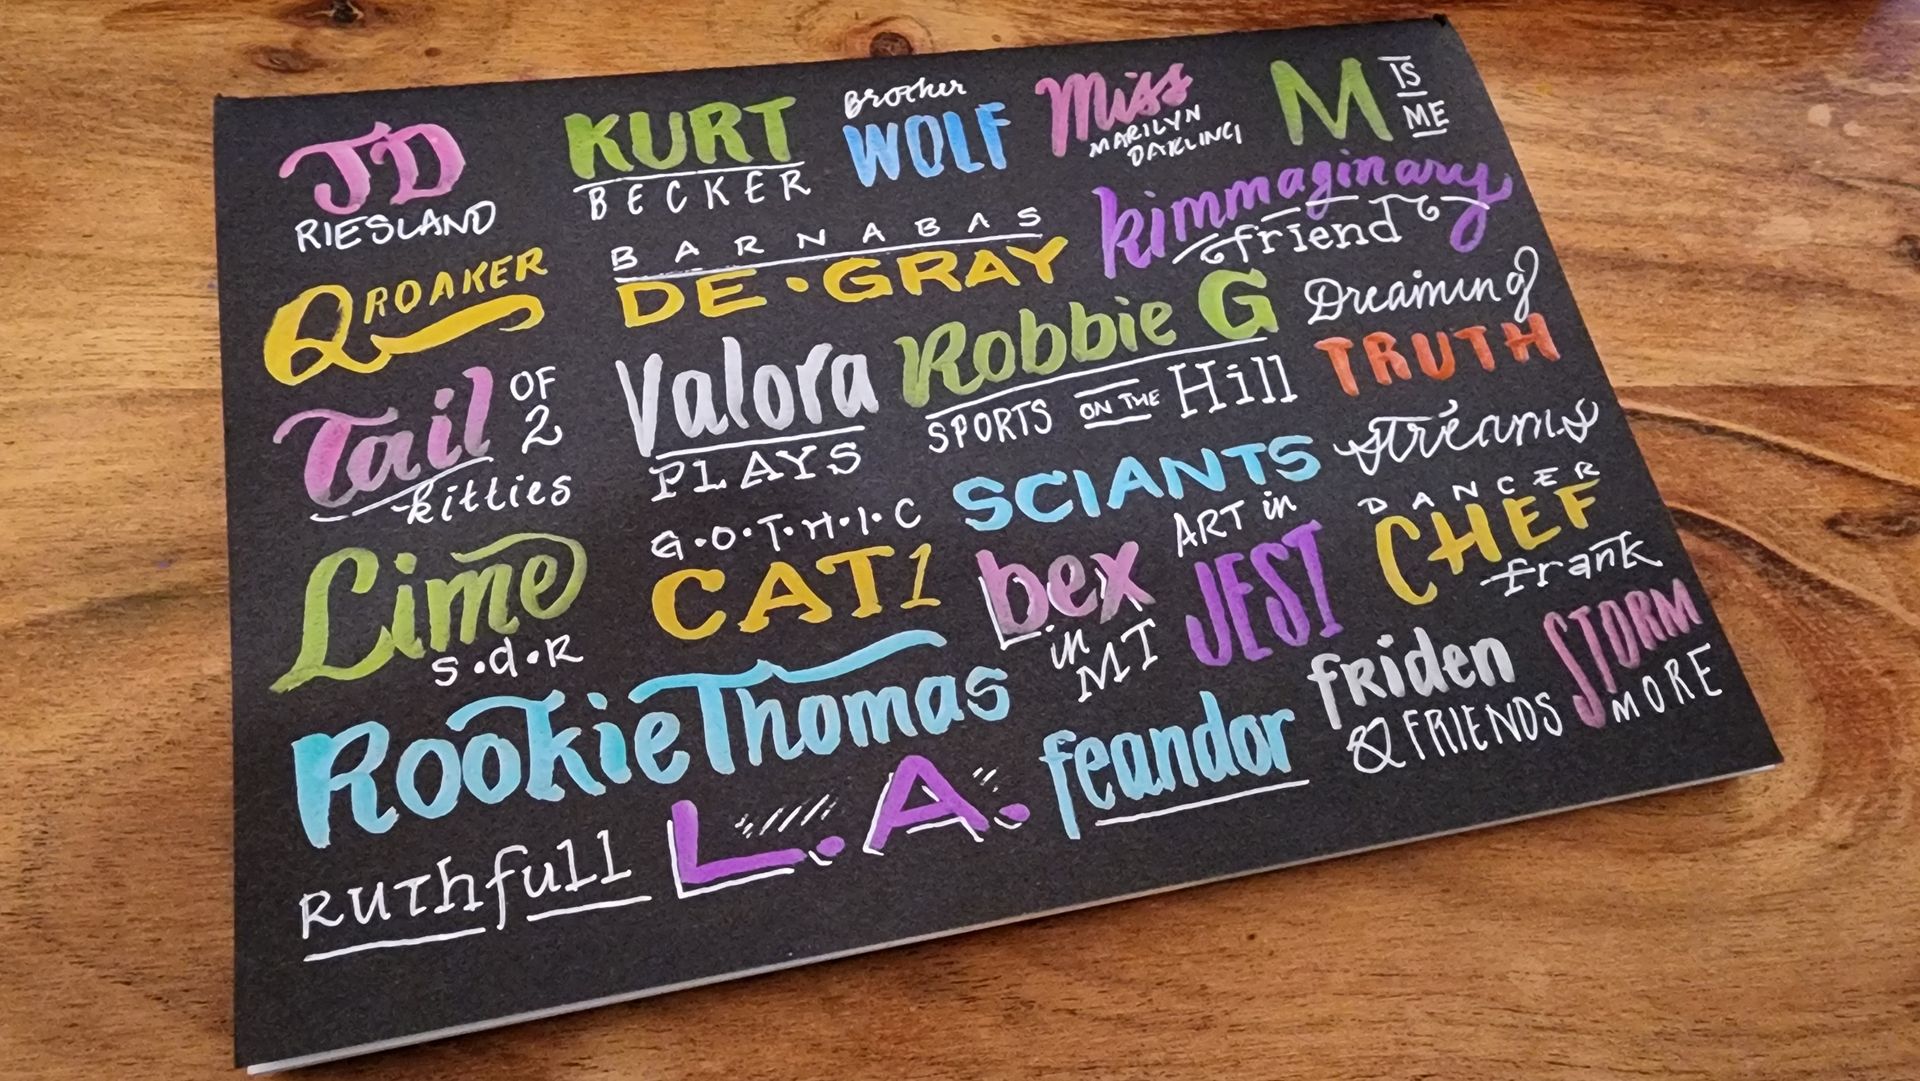 JD
RIESLAND
KURT
BECKER
Brother
WOLF
Miss
MARILYN
DARLING
M IS
ME
QROAKER
BARNABAS
DE • GRAY
kimmaginary
friend
Tail OF
2
kitties
Valora
PLAYS
Robbie G
SPORTS ON THE Hill
Dreaming
TRUTH
streams
Lime
S•d•R
G•O•T•H•I•C
CAT1
SCIANTS
bex
in
MT
ART in
JEST
DANCER
CHEF
frank
RookieThomas
feandor
friden
& FRIENDS
STORM
MORE
RUThfull
L.A.